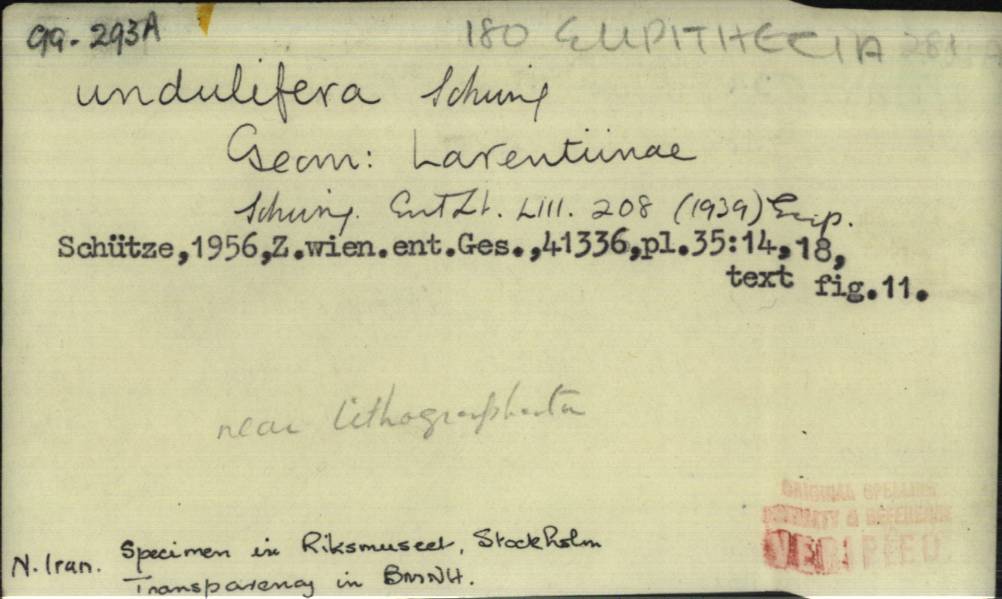 99-293A 180 EUPITHECIA 281A
undulifera Schwing
Geom: Larentiinae
Schwing. Ent Zt. LIII. 208 (1939) Eup.
Schütze,1956,Z.wien.ent.Ges.,41336,pl.35:14,18,
text fig.11.
near lithographata
ORIGINAL SPELLING
PRIORITY & REFERENCE
VERIFIED
N. Iran. Specimen in Riksmuseet, Stockholm
Transparency in BMNH.